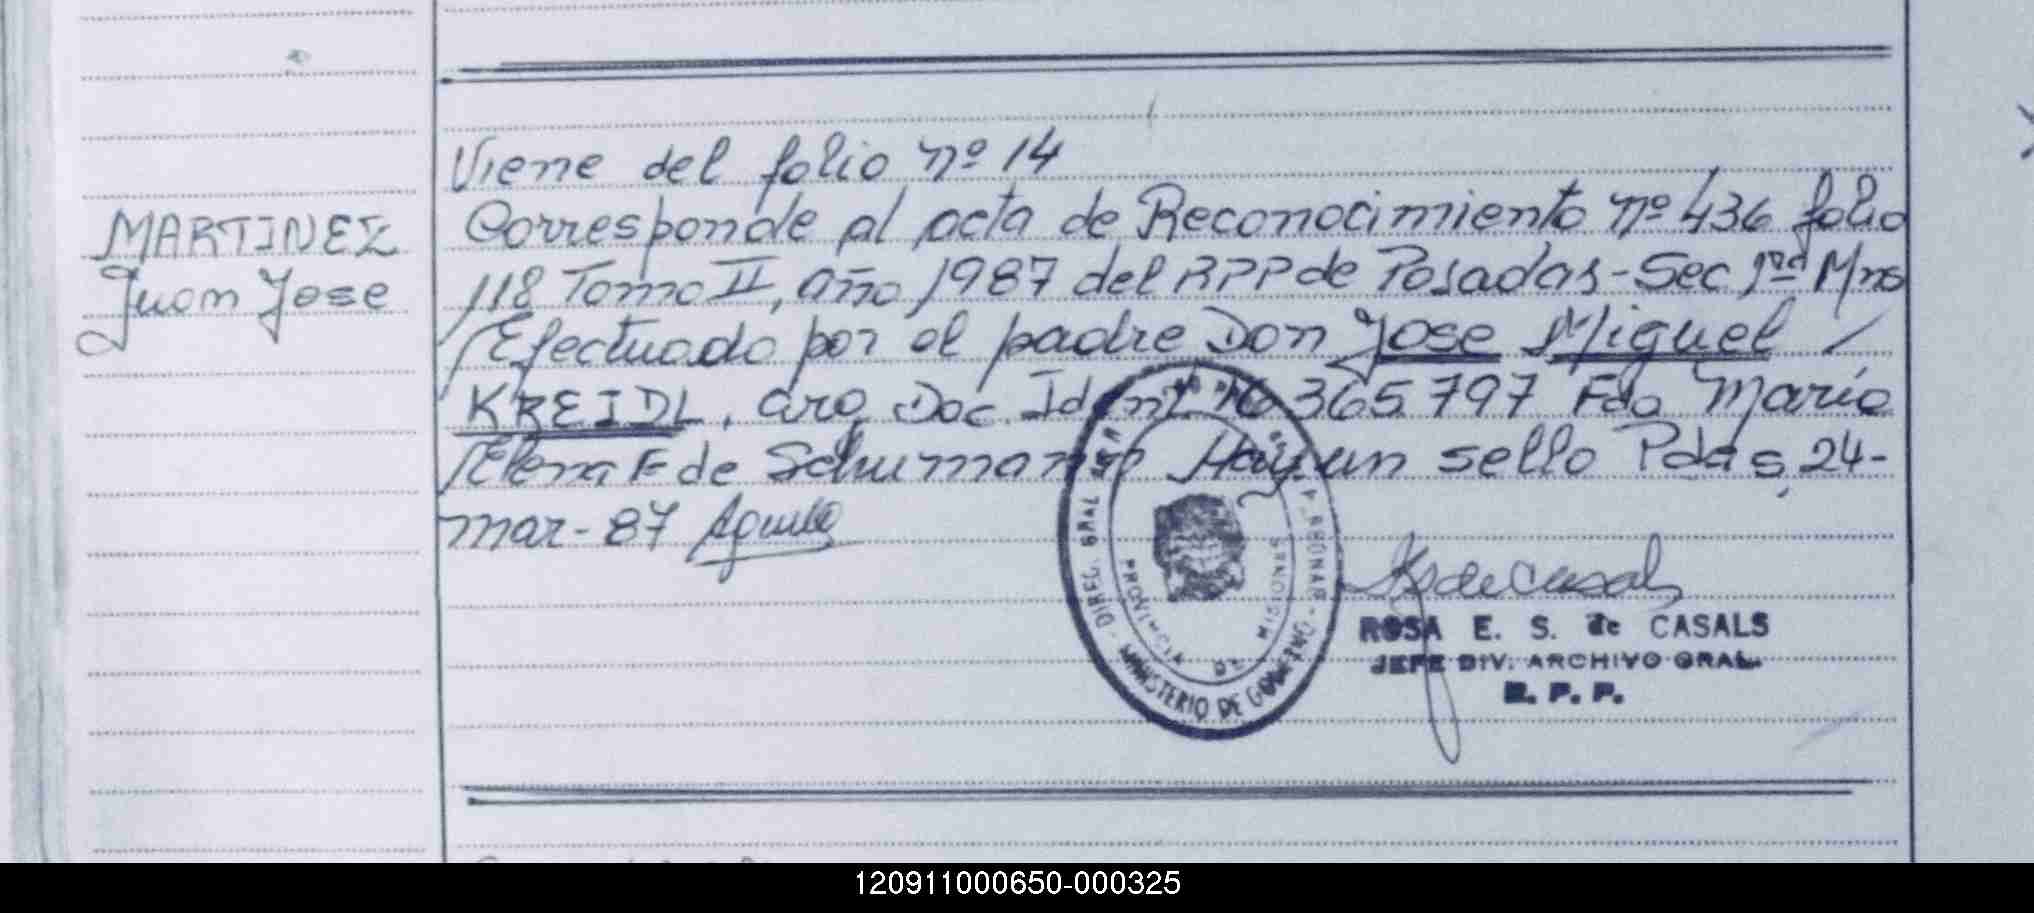 Viene del folio nº 14
MARTINEZ
Juan Jose
Corresponde al acta de Reconocimiento nº 436 folio
118 Tomo II, año 1987 del RPP de Posadas - Sec 1rd Mns
Efectuado por el padre Don Jose Miguel /
KREIDL, arg. Doc. Ident. 10.365797 Fdo María
Elena F de Schumann Hay un sello Pdas, 24-
mar-87
DIREC. GRAL
MINISTERIO DE GOBIERNO
PROVINCIA DE MISIONES
ROSA E. S. de CASALS
JEFE DIV. ARCHIVO GRAL.
R. P. P.
120911000650-000325